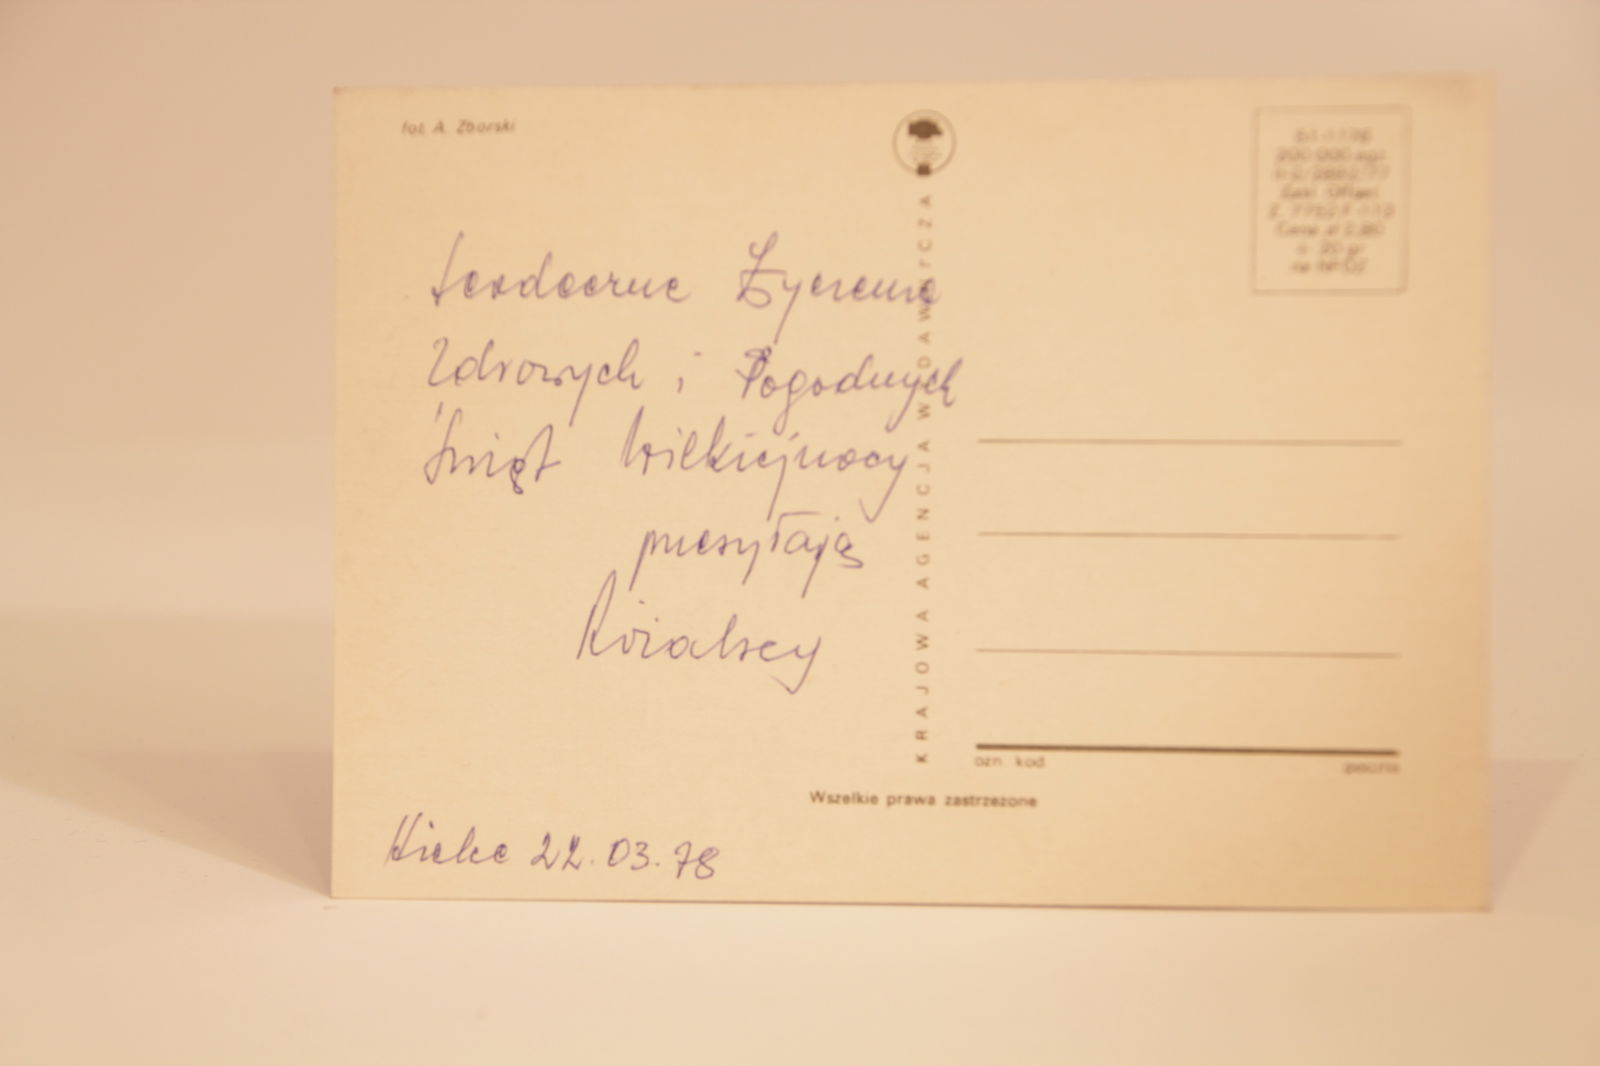 fot. A. Zborski
Serdeczne Życzenia
Zdrowych i Pogodnych
Świąt Wilkiejnocy
przesyłają
Kielce 22.03.78
KRAJOWA AGENCJA WYDAWNICZA
ozn. kod
poczta
Wszelkie prawa zastrzeżone